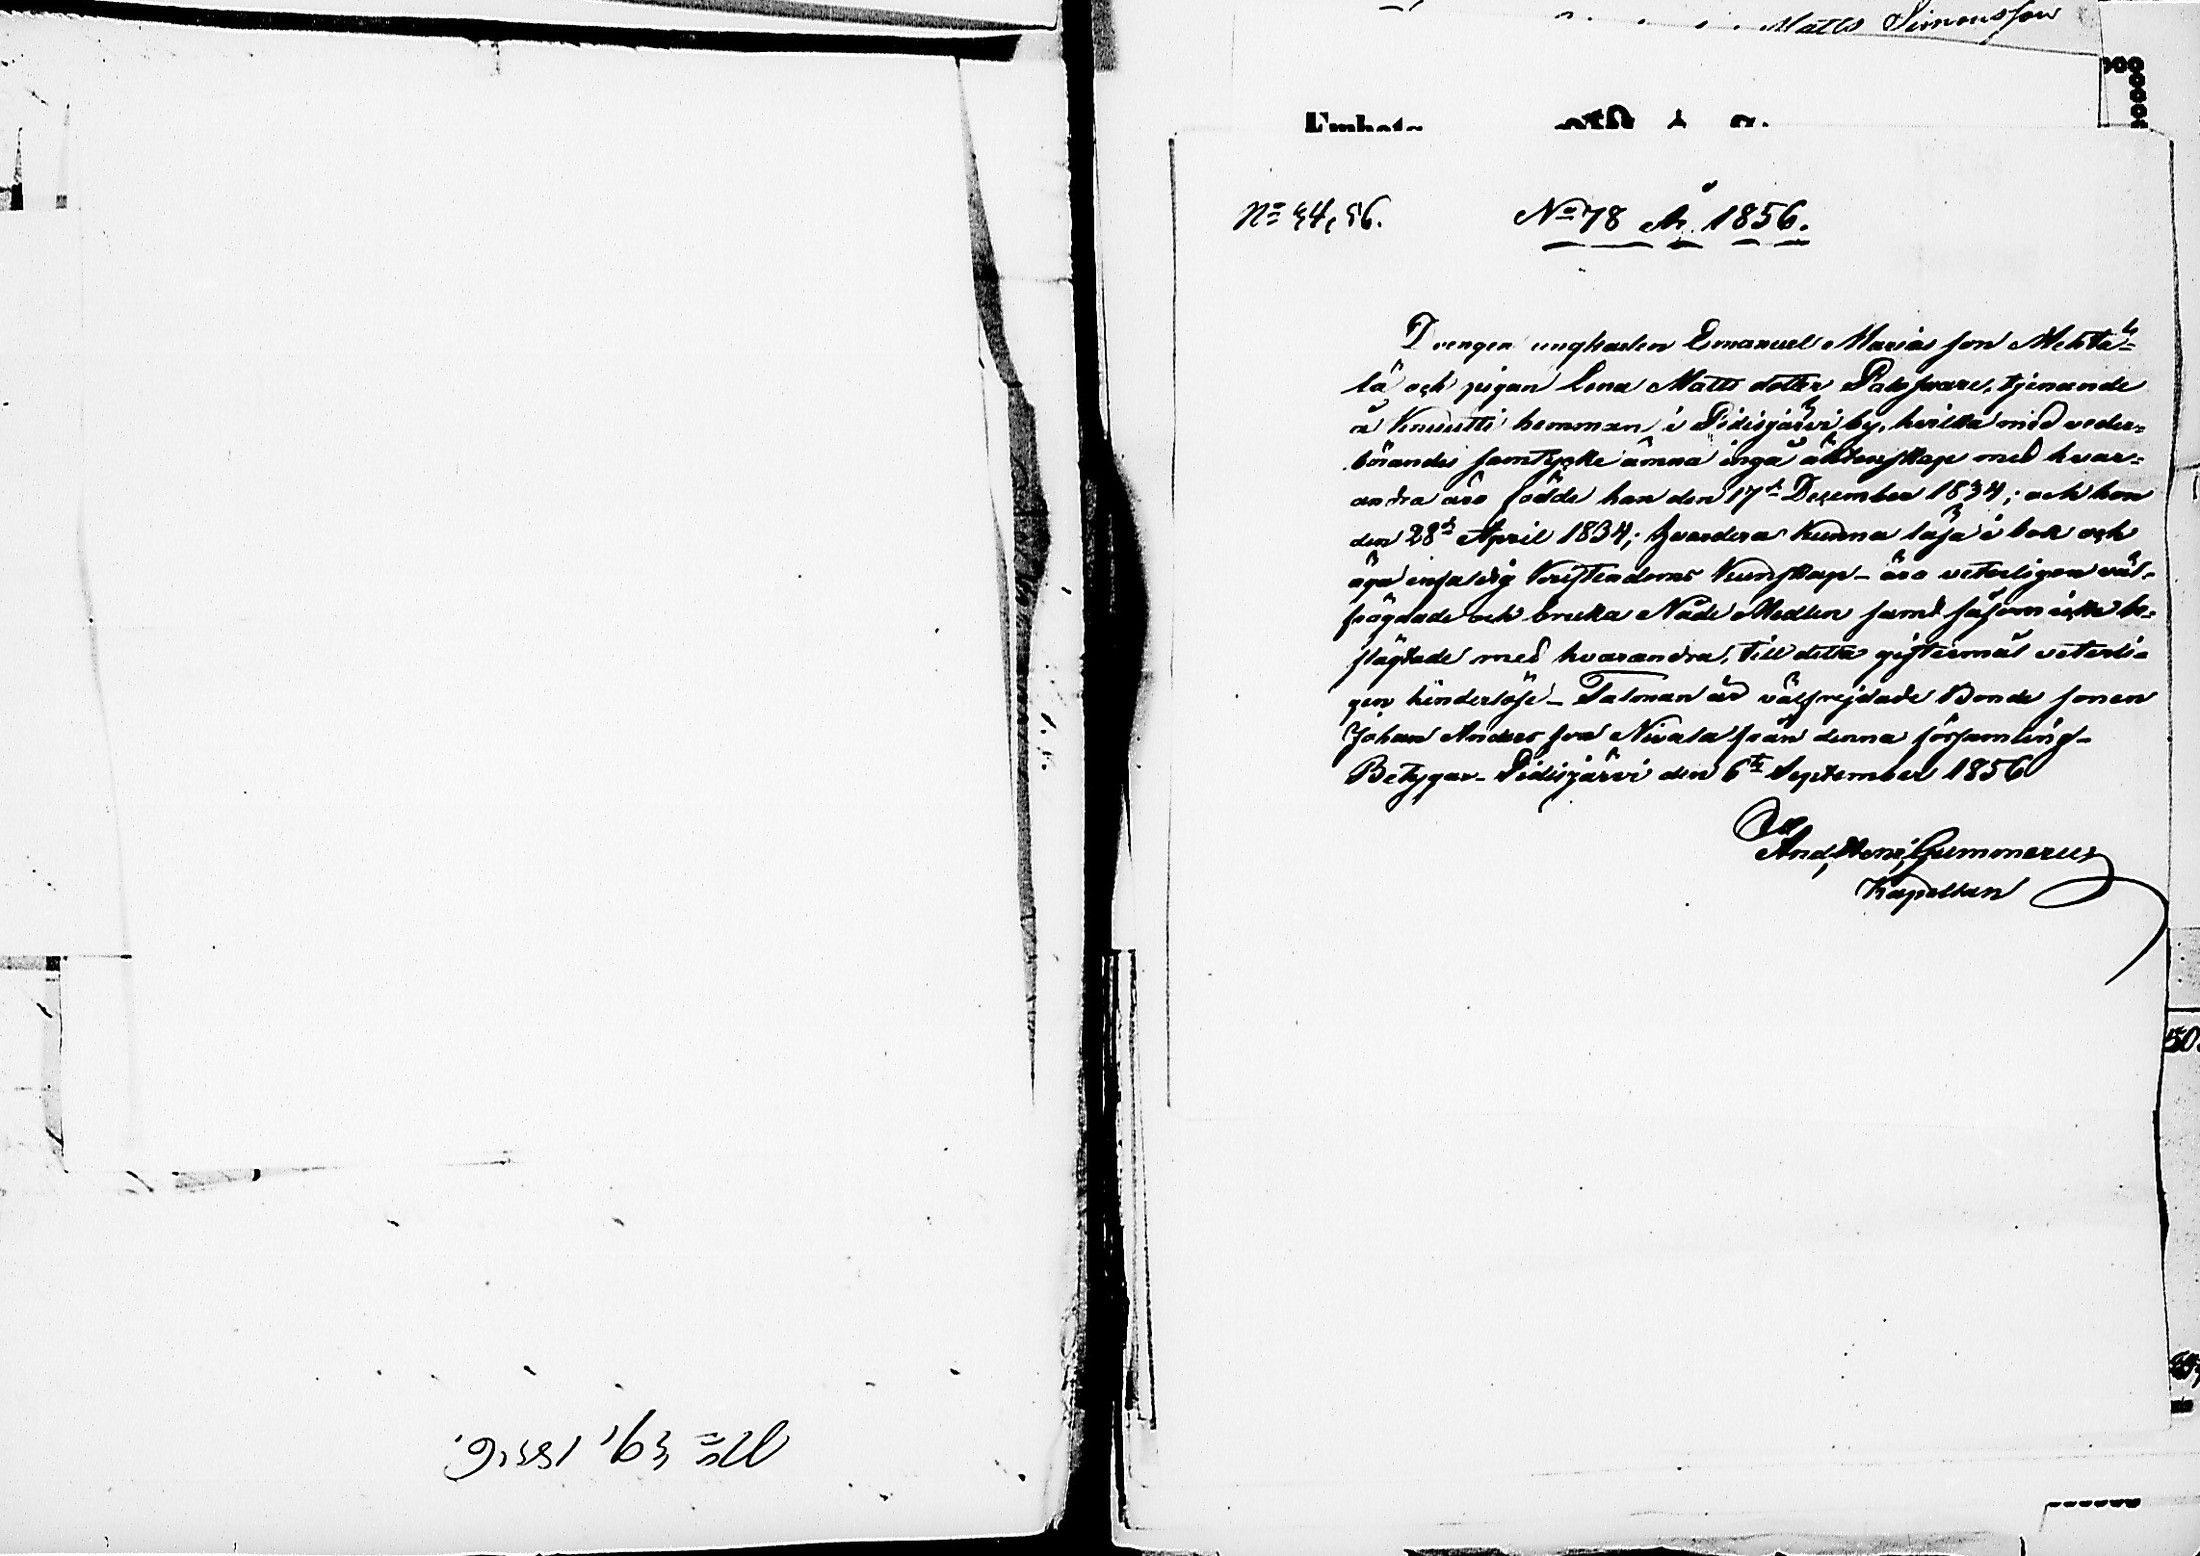 Matts Simonsson
No 54, 56.
No 78 År 1856.
Drengen ungkarlen Emanuel Mariasson Mehtä-
lä och pigan Lena Mattsdotter Palosaare, tjenande
å Knuutti hemman i Pidisjärvi by, hvilka med veder-
börandes samtycke ämna ingå äktenskap med hvar-
andra äro födde han den 17de December 1834; och hon
den 28de April 1834; hvardera kunna läsa i bok och
äga enfaldig Kristendoms Kunskap - äro veterligen väl-
frägdade och bruka Nåde Medlen samt såsom icke be-
slägtade med hvarandra, till detta giftermål veterli-
gen hinderlöse - Talman är välfrejdade Bonde sonen
Johan Andersson Nivala från denna församling -
Betygar - Pidisjärvi den 6te September 1856
And, Henr, Gummerus
Kapellan
No 59, 1856.